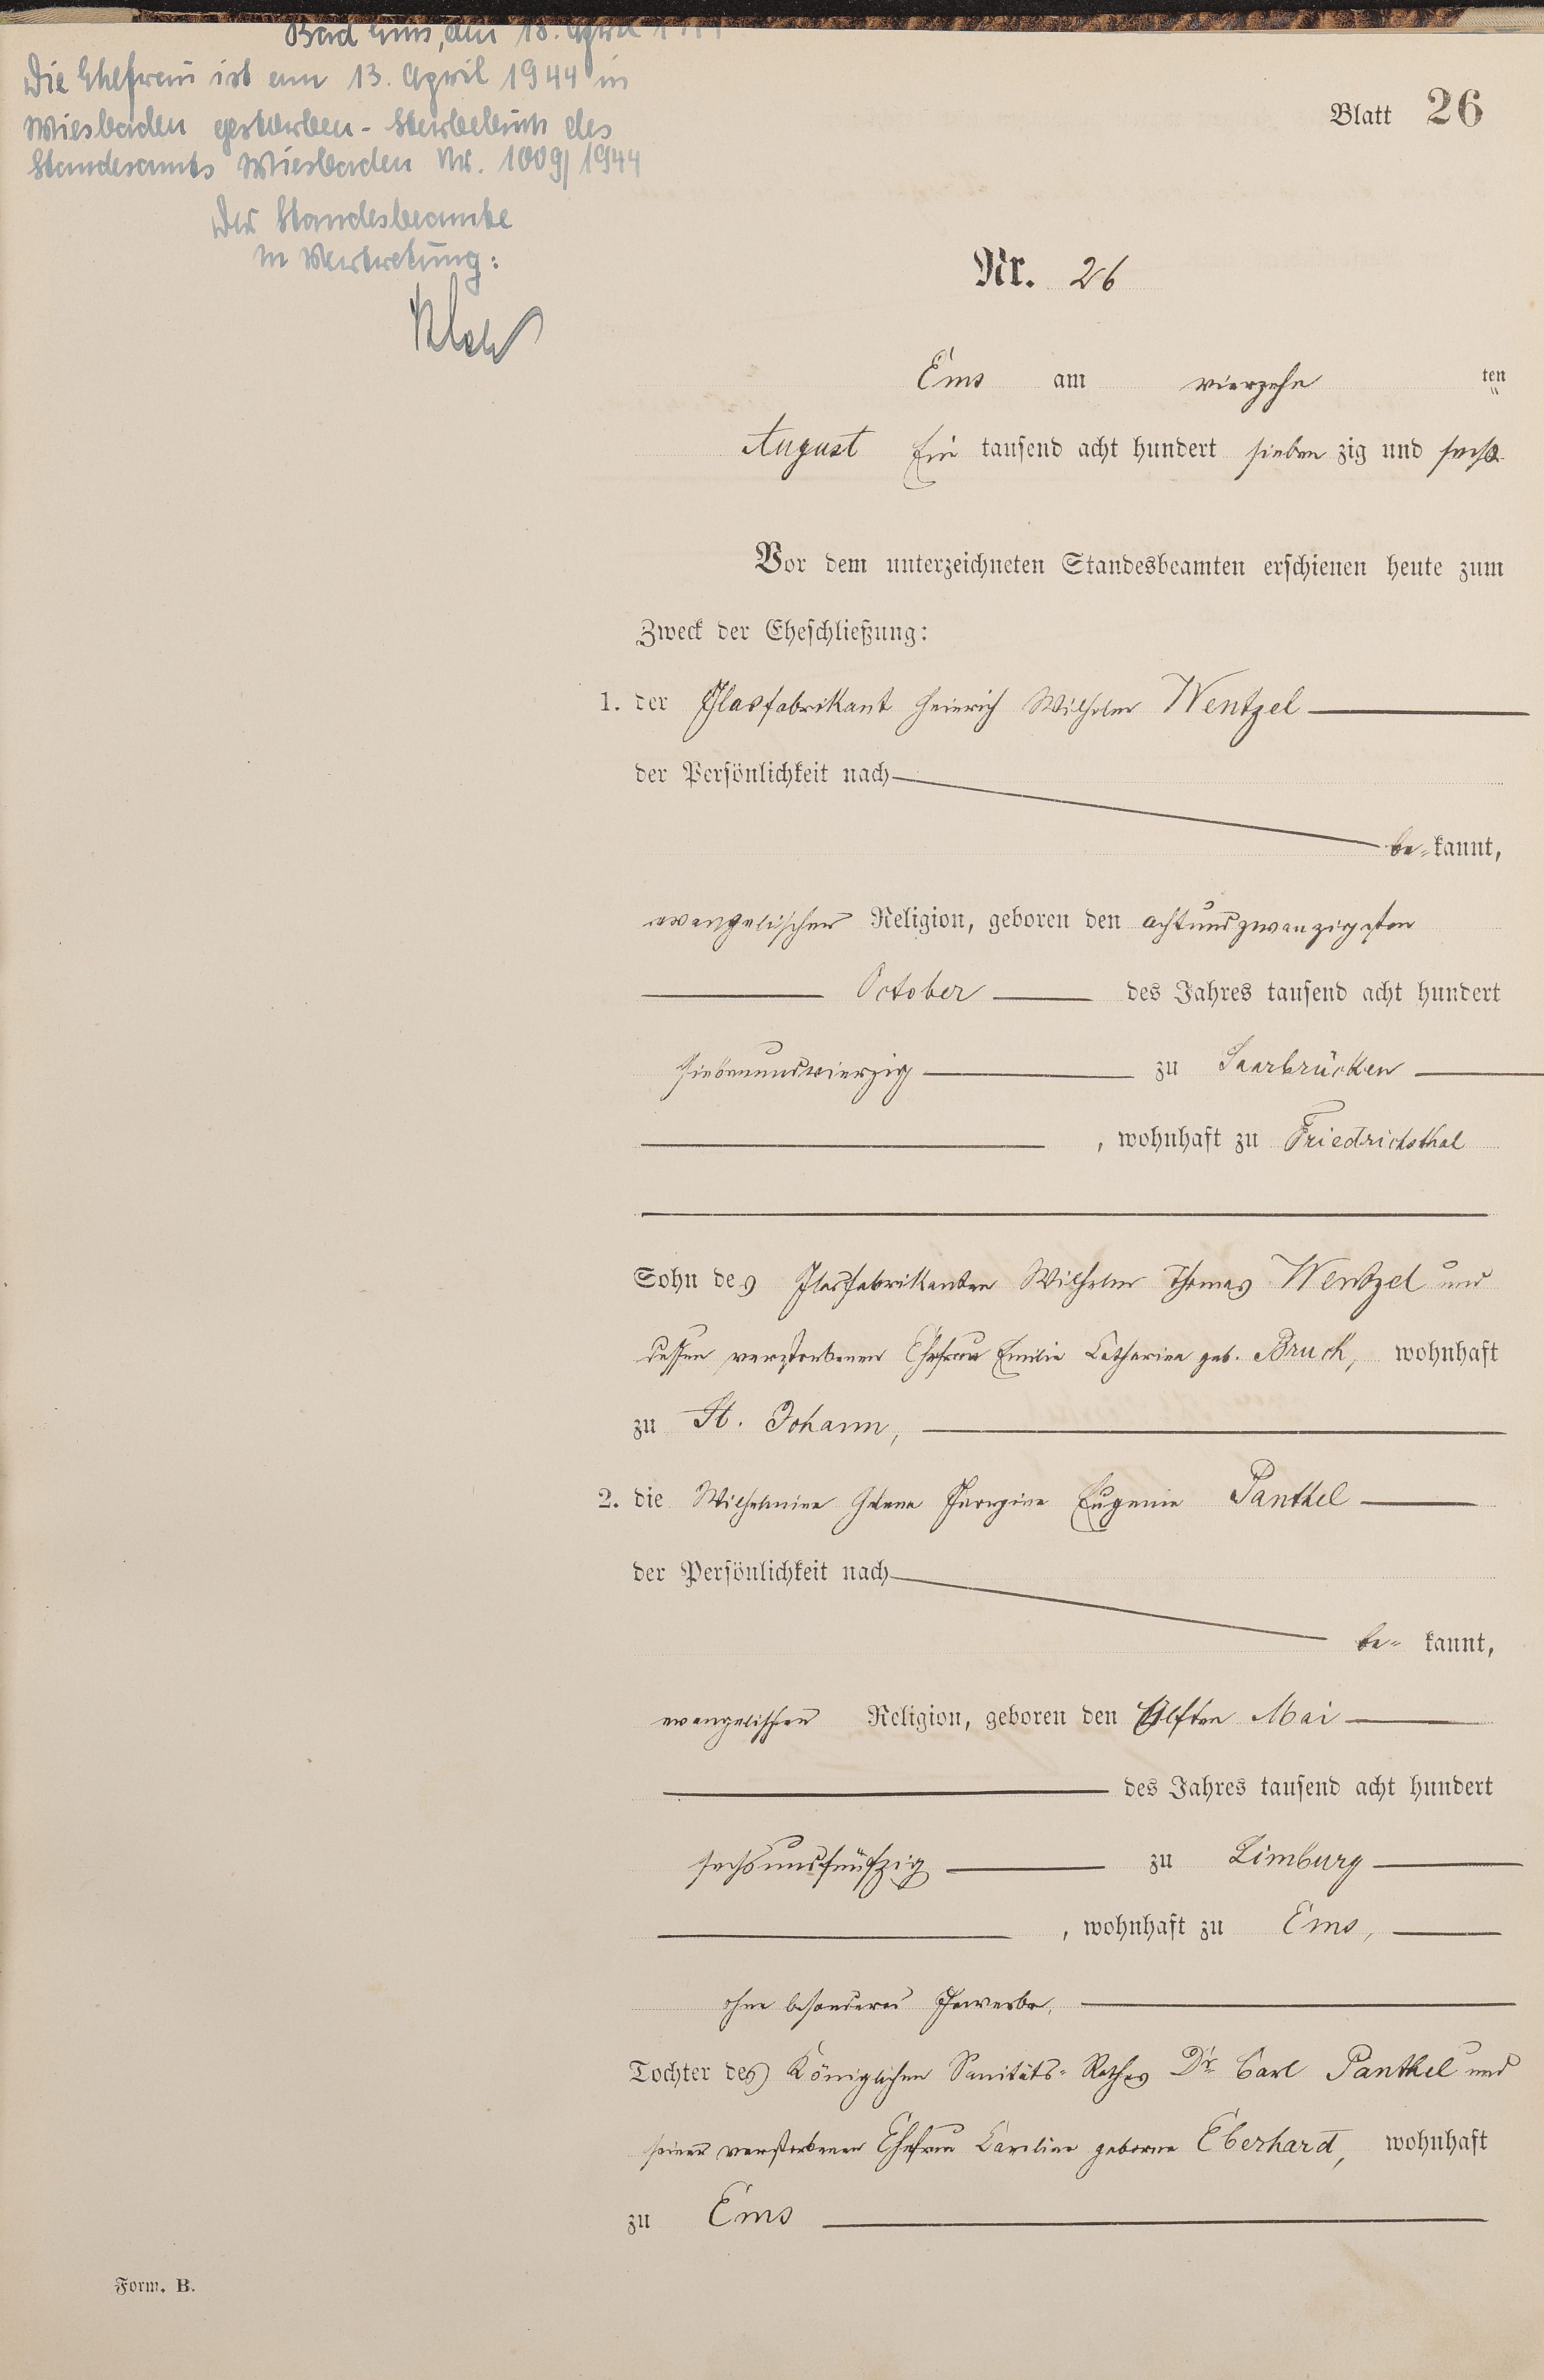 Bad Ems, den 18. April 1944
Die Ehefrau ist am 13. April 1944 in
Wiesbaden gestorben - Sterbebuch des
Standesamts Wiesbaden Nr. 1009/1944
Der Standesbeamte
In Vertretung:
Blatt 26
Nr. 26
Ems am vierzehn ten
August Ein tausend acht hundert sieben zig und sechs.
Vor dem unterzeichneten Standesbeamten erschienen heute zum
Zweck der Eheschließung:
1. der Glasfabrikant Heinrich Wilhelm Wentzel
der Persönlichkeit nach
be-kannt,
evangelischer Religion, geboren den achtundzwanzigsten
October des Jahres tausend acht hundert
siebenundvierzig zu Saarbrücken
, wohnhaft zu Friedrichsthal
Sohn des Glasfabrikanten Wilhelm Thomas Wentzel und
dessen verstorbenen Ehefrau Emilie Catharina geb. Bruch, wohnhaft
zu St. Johann,
2. die Wilhelmine Helene Georgine Eugenie Panthel
der Persönlichkeit nach
be- kannt,
evangelischen Religion, geboren den Elften Mai
des Jahres tausend acht hundert
sechsundfünfzig zu Limburg
, wohnhaft zu Ems,
ohne besonderes Gewerbe,
Tochter des Königlichen Sanitäts-Rathes Dr. Carl Panthel und
seiner verstorbenen Ehefrau Caroline geborne Eberhard, wohnhaft
zu Ems
Form. B.